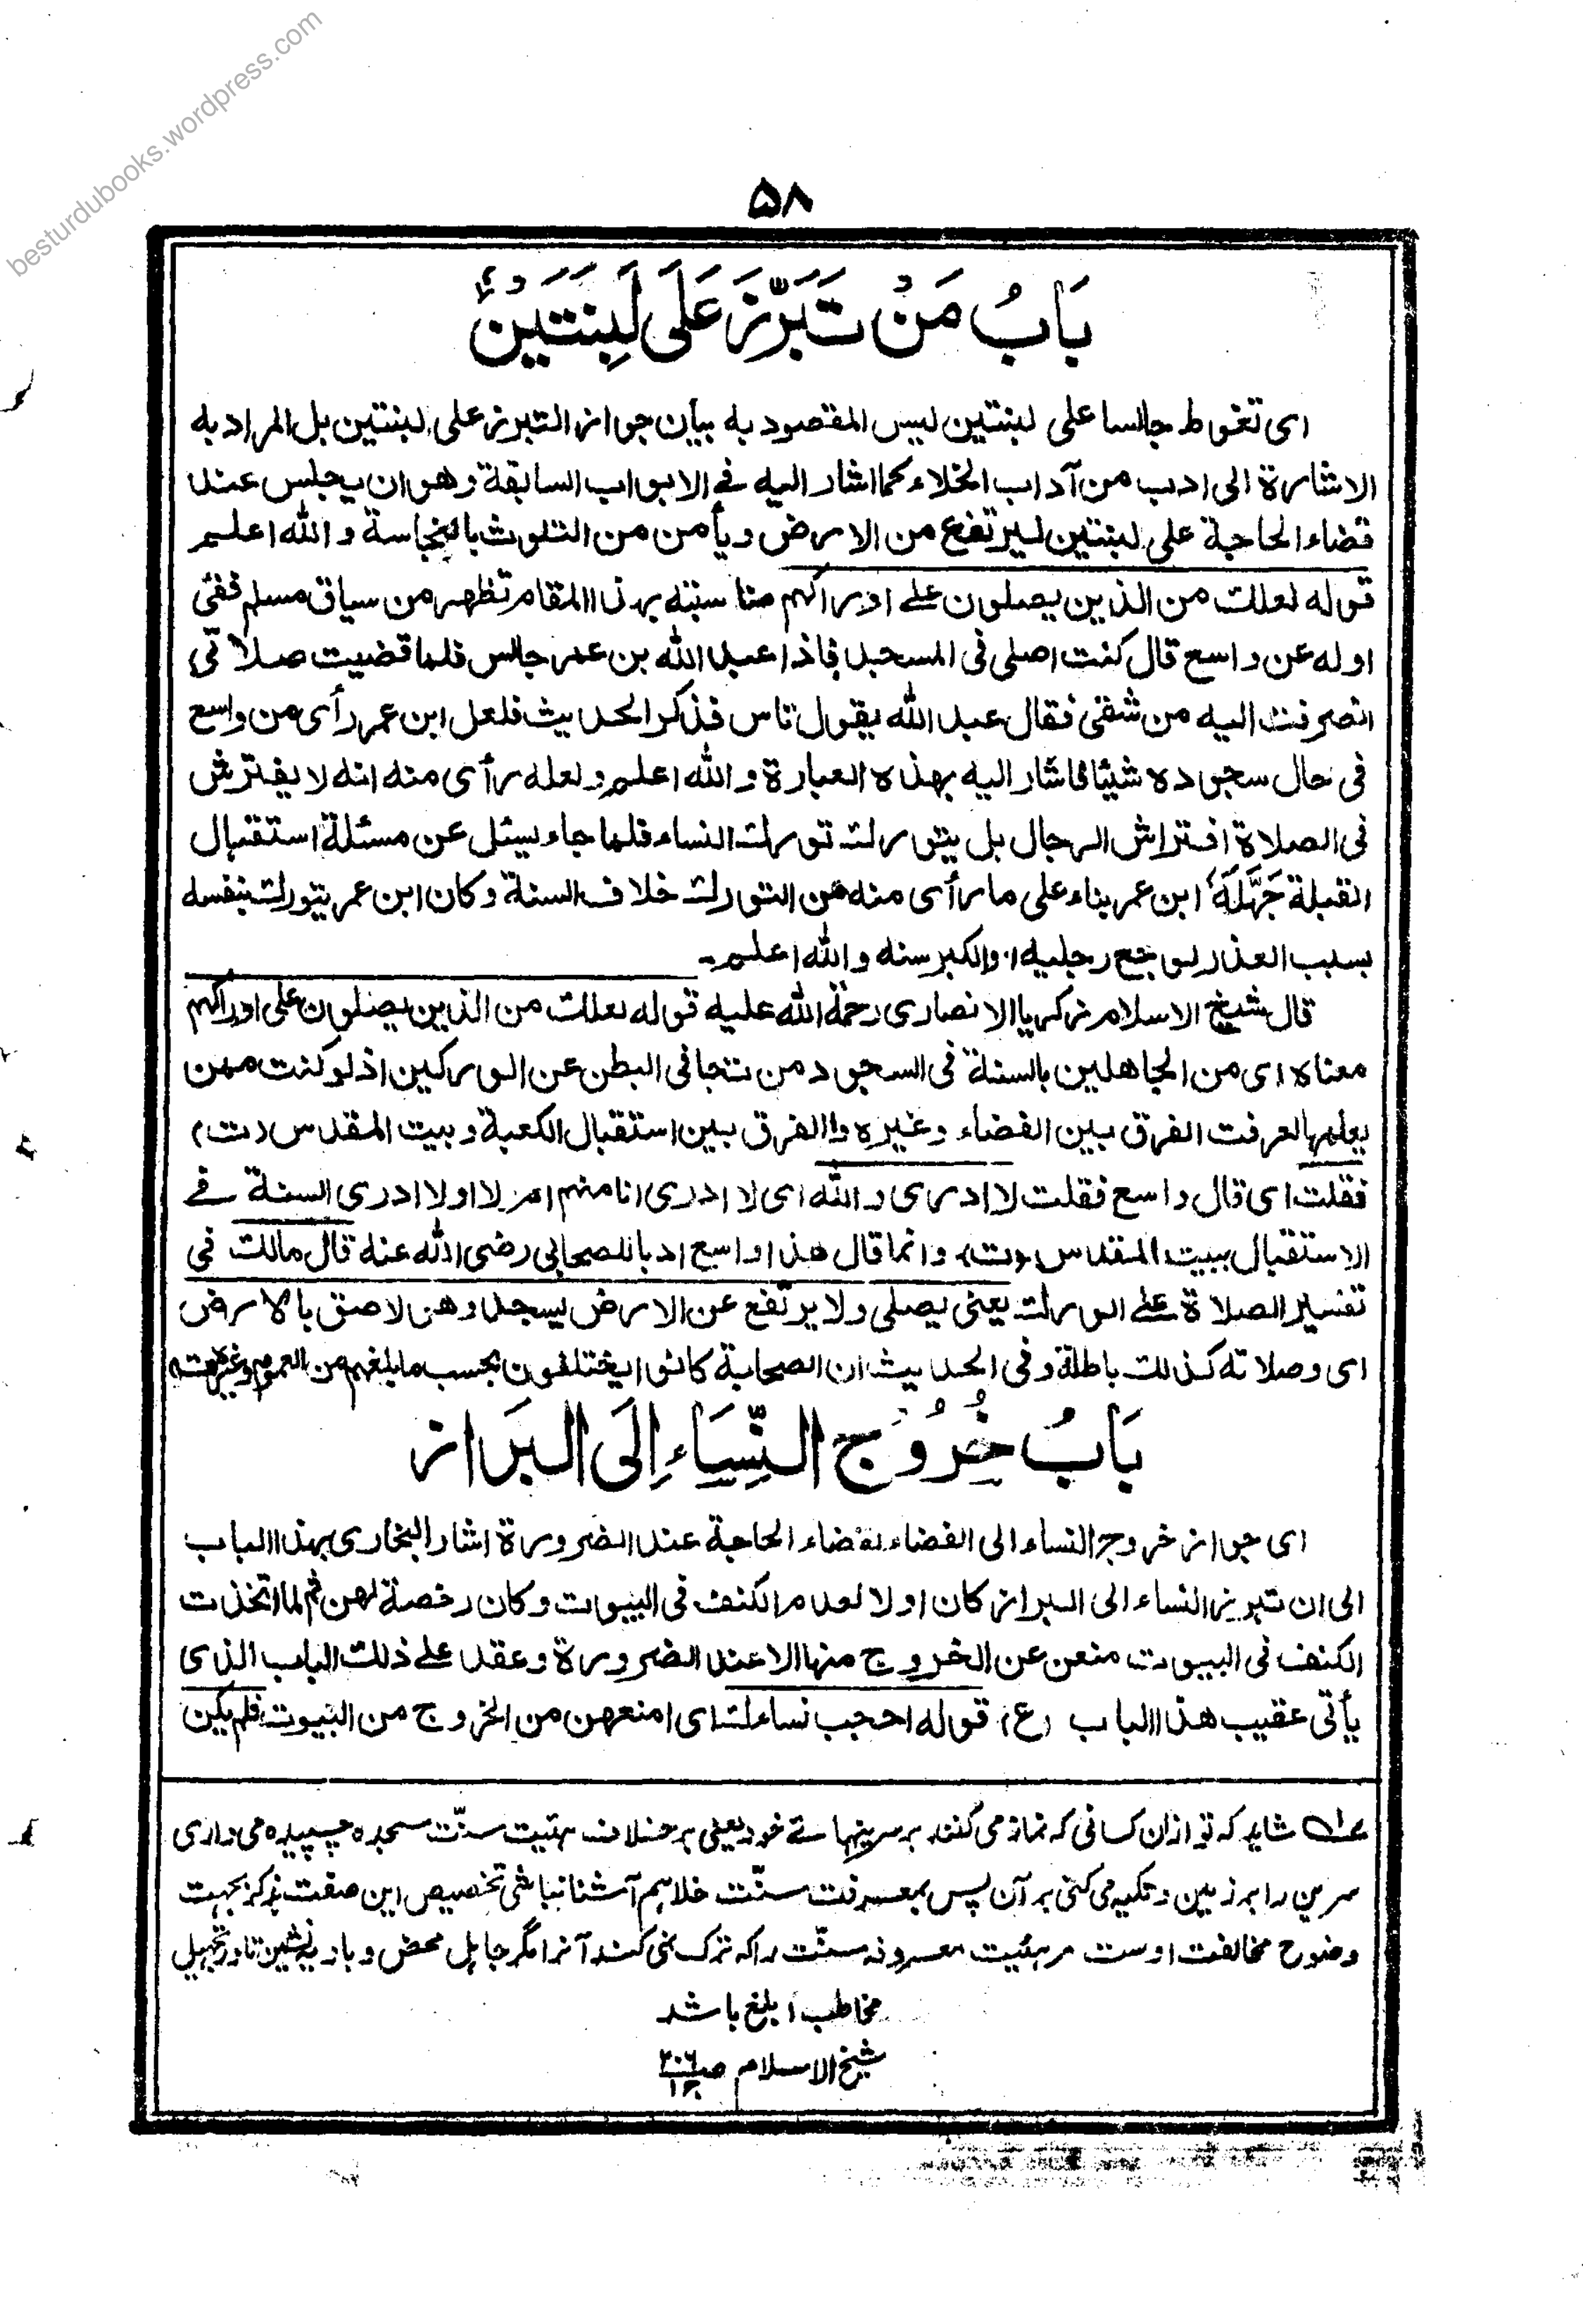 besturdubooks.wordpress.com
۵۸
بَابُ مَنْ تَبَرَّزَ عَلَى لَبِنَتَيْنِ
ای تغوط جالسا علی لبنتین لیس المقصود به بیان جواز التبرز علی لبنتین بل المراد به
الاشارة الی ادب من آداب الخلاء کما اشار الیه فے الابواب السابقة وهو ان یجلس عند
قضاء الحاجة علی لبنتین لیرتفع من الارض ویأمن من التلوث بالنجاسة والله اعلم
قوله لعلك من الذین یصلون علے اوراکهم مناسبته بهذا المقام تظهر من سیاق مسلم ففی
اوله عن واسع قال کنت اصلی فی المسجد فاذا عبد الله بن عمر جالس فلما قضیت صلاتی
انصرفت الیه من شقی فقال عبد الله یقول ناس فذکر الحدیث فلعل ابن عمر رأی من واسع
فی حال سجوده شیئا فاشار الیه بهذه العبارة والله اعلم ولعله رأی منه انه لا یفترش
فی الصلاة افتراش الرجال بل یتورك تورك النساء فلما جاء یسئل عن مسئلة استقبال
القبلة جَهَّلَهٗ ابن عمر بناء علی ما رأی منه من التورك خلاف السنة وکان ابن عمر یتورك بنفسه
بسبب العذر لوجع رجلیه او لکبر سنه والله اعلم۔
قال شیخ الاسلام زکریا الانصاری رحمة الله علیه قوله لعلك من الذین یصلون علی اوراکهم
معناه ای من الجاهلین بالسنة فی السجود من تجافی البطن عن الورکین اذ لو کنت ممن
یعلمها لعرفت الفرق بین الفضاء وغیره والفرق بین استقبال الکعبة وبیت المقدس (ت)
فقلت ای قال واسع فقلت لا ادری والله ای لا ادری انا منهم ام لا او لا ادری السنة فے
الاستقبال ببیت المقدس (ت) وانما قال هذا واسع ادبا للصحابی رضی الله عنه قال مالك فی
تفسیر الصلاة علے الورك یعنی یصلی ولا یرتفع عن الارض یسجد وهو لاصق بالارض
ای وصلاته کذلك باطلة وفی الحدیث ان الصحابة کانوا یختلفون بحسب ما بلغهم من العموم وغیره
بَابُ خُرُوْجِ النِّسَاءِ اِلَى الْبَرَازِ
ای جواز خروج النساء الی الفضاء لقضاء الحاجة عند الضرورة اشار البخاری بهذا الباب
الی ان تبرز النساء الی البراز کان اولا لعدم الکنف فی البیوت وکان رخصة لهن ثم لما اتخذت
الکنف فی البیوت منعن عن الخروج منها الا عند الضرورة وعقد علے ذلك الباب الذی
یأتی عقیب هذا الباب (ع) قوله احجب نساءك ای امنعهن من الخروج من البیوت فلم یکن
شاید که تو ازان کسانی که نماز می کنند بر سرینهائے خود یعنی بر خلاف هیئت سنّت سجده چسپیده می داری
سرین را بر زمین و تکیه می کنی بر آن پس بمعرفت سنّت خلا هم آشنا نباشی تخصیص این صفت بذکر بجهت
وضوح مخالفت اوست مر هیئت معروفه سنّت را که ترک نمی کند آنرا مگر جاهل محض و بادیه نشین تا در تجهیل
مخاطب ابلغ باشد
شیخ الاسلام